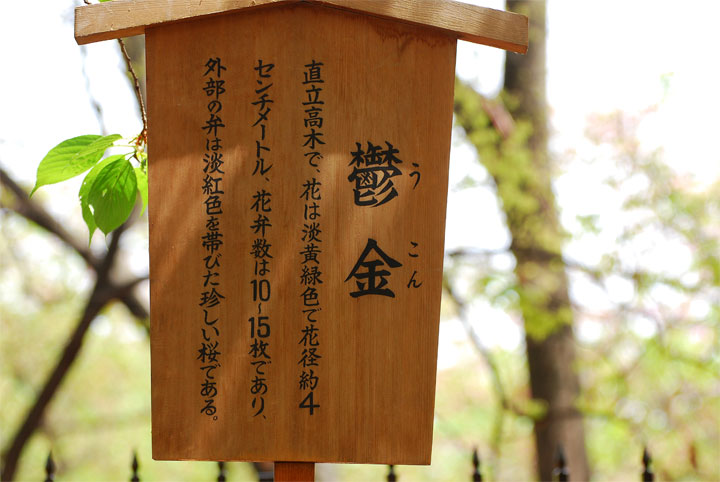 鬱金
うこん
直立高木で、花は淡黄緑色で花径約4
センチメートル、花弁数は10~15枚であり、
外部の弁は淡紅色を帯びた珍しい桜である。